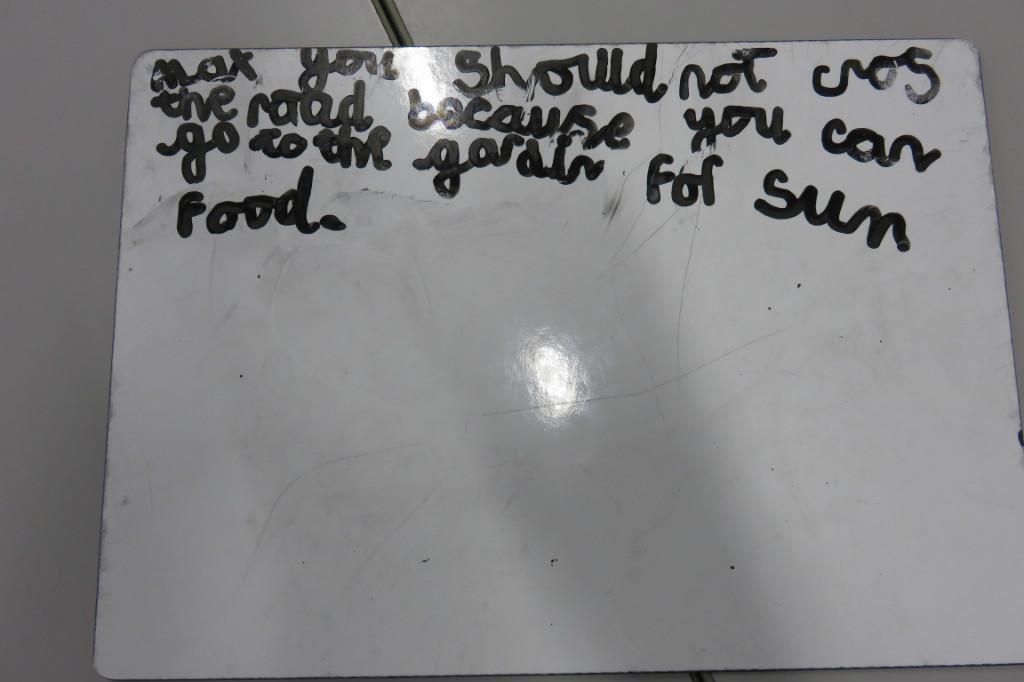 max you should not cros
the road because you can
go to the gardin for sun
food.